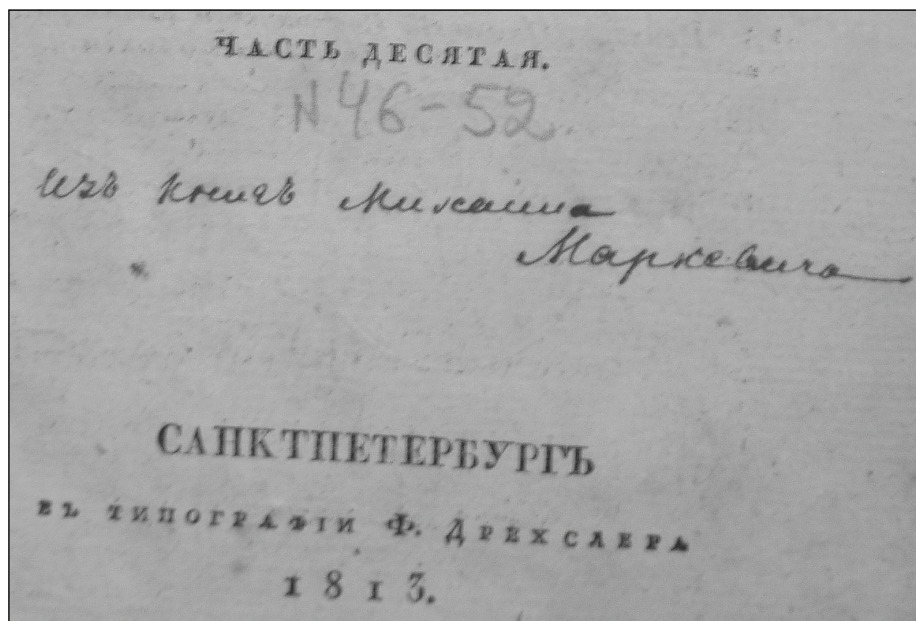 ЧАСТЬ ДЕСЯТАЯ.
N 46-52
Изъ книгъ Михаила
Маркевича
САНКТПЕТЕРБУРГЪ
ВЪ ТИПОГРАФІИ Ф. ДРЕХСЛЕРА
1813.